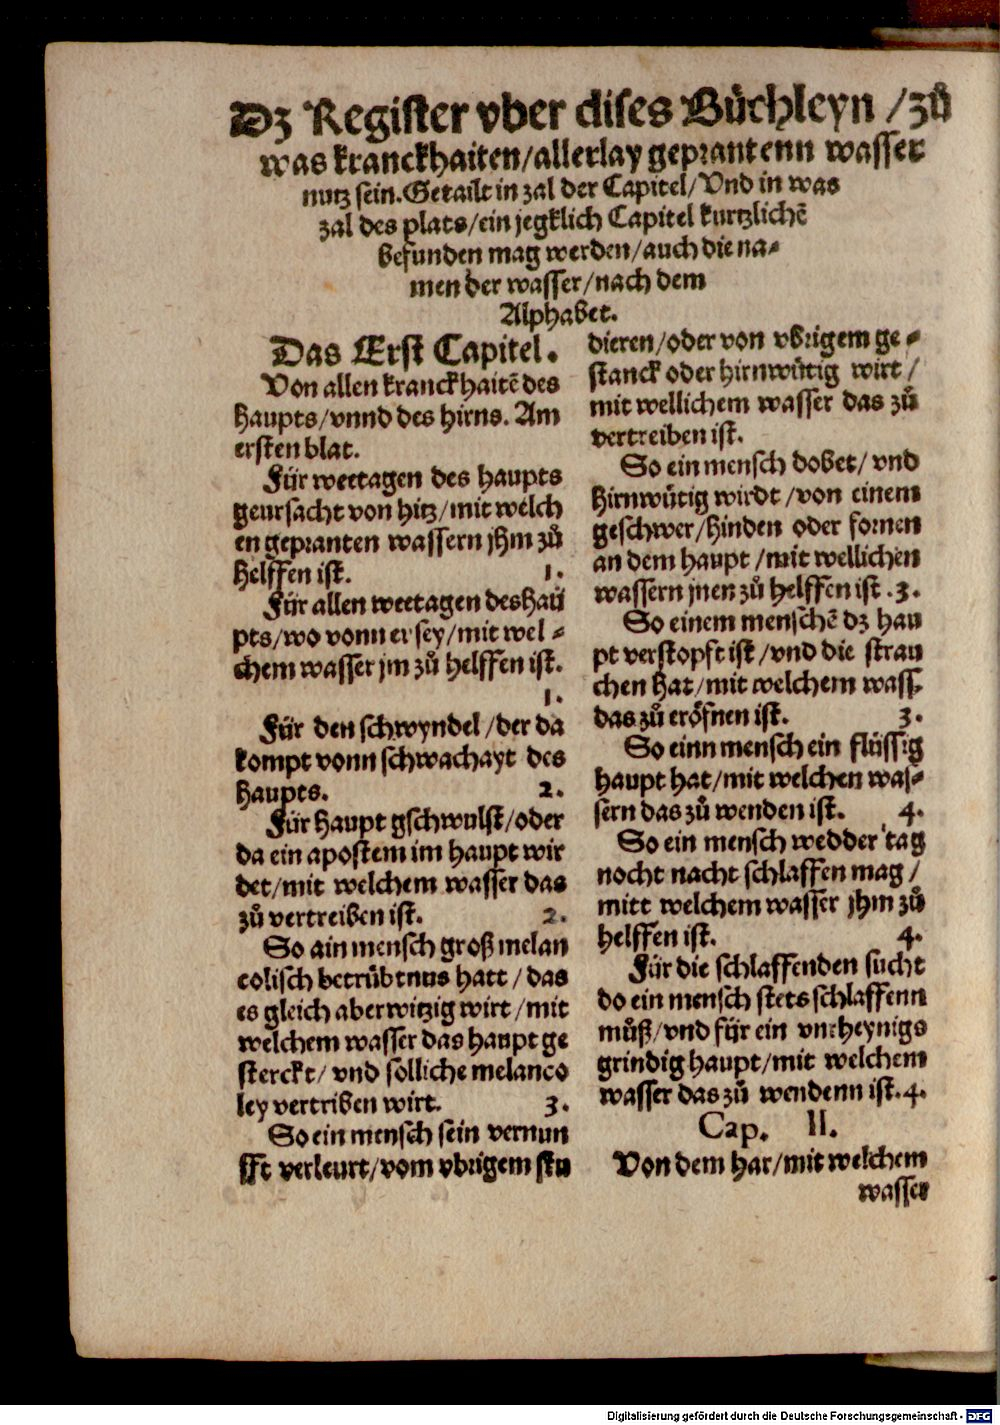 Dz Register vber dises Bůchleyn /zů
was kranckhaiten/allerlay geprantenn wasser
nutz sein. Getailt in zal der Capitel/Vnd in was
zal des plats/ein jegklich Capitel kurtzlichē
befunden mag werden/auch die na⸗
men der wasser/nach dem
Alphabet.
Das Erst Capitel.
Von allen kranckhaitē des
haupts/vnnd des hirns. Am
ersten blat.
Für weetagen des haupts
geursacht von hitz/mit welch
en gepranten wassern jhm zů
helffen ist. 1.
Für allen weetagen des hau
pts/wo vonn er sey/mit wel⸗
chem wasser jm zů helffen ist.
1.
Für den schwyndel/der da
kompt vonn schwachayt des
haupts. 2.
Für haupt gschwulst/oder
da ein apostem im haupt wir
det/mit welchem wasser das
zů vertreiben ist. 2.
So ain mensch groß melan
colisch betrübtnus hatt/das
es gleich aberwitzig wirt/mit
welchem wasser das haupt ge
sterckt/vnd solliche melanco
ley vertriben wirt. 3.
So ein mensch sein vernun
fft verleurt/vom vbrigem stu
dieren/oder von vbrigem ge⸗
stanck oder hirnwůtig wirt/
mit wellichem wasser das zů
vertreiben ist.
So ein mensch dobet/vnd
hirnwůtig wirdt/von einem
geschwer/hinden oder fornen
an dem haupt/mit wellichen
wassern jnen zů helffen ist. 3.
So einem menschē dz hau
pt verstopft ist/vnd die strau
chen hat/mit welchem wass.
das zů eröfnen ist. 3.
So einn mensch ein flüssig
haupt hat/mit welchen was⸗
sern das zů wenden ist. 4.
So ein mensch wedder tag
nocht nacht schlaffen mag/
mitt welchem wasser jhm zů
helffen ist. 4.
Für die schlaffenden sucht
do ein mensch stets schlaffenn
můß/vnd für ein vnrheynigs
grindig haupt/mit welchem
wasser das zů wendenn ist. 4.
Cap. II.
Von dem har/mit welchem
wasser
Digitalisierung gefördert durch die Deutsche Forschungsgemeinschaft - DFG